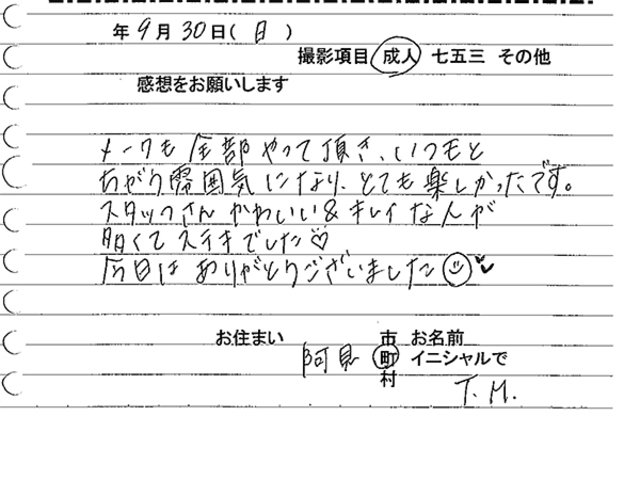 年9月30日(日)
撮影項目 成人 七五三 その他
感想をお願いします
メークも全部やって頂き、いつもと
ちがう雰囲気になり、とても楽しかったです。
スタッフさんかわいい&キレイな人が
多くてステキでした♡
今日はありがとうございました☺♥
お住まい 阿見 市町村 お名前イニシャルで
T.M.